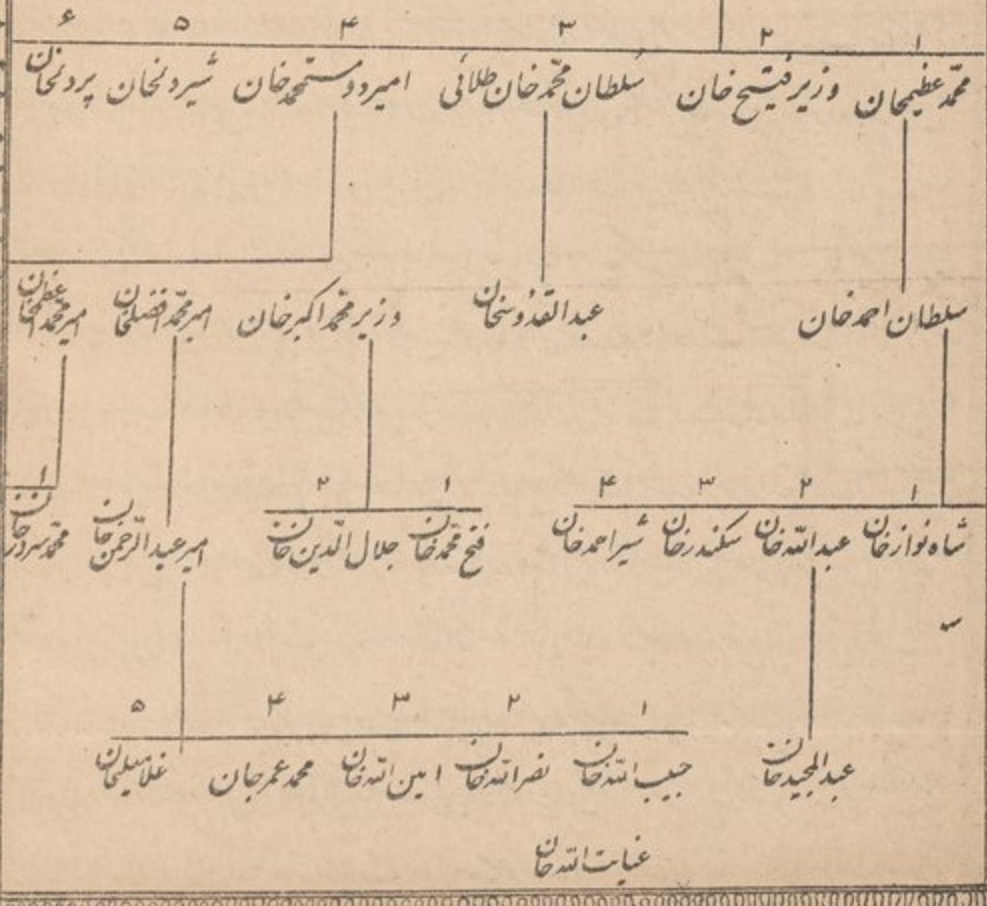 ۱ ۲ ۳ ۴ ۵ ۶
محمد عظیمخان وزیر فتیح خان سلطان محمد خان طلائی امیر دوستمحمد خان شیردلخان پردلخان
سلطان احمد خان عبدالقدوسخان وزیر محمد اکبر خان امیر محمد افضلخان امیر محمد اعظمخان
۱ ۲ ۳ ۴ ۱ ۲ ۱
شاه نواز خان عبدالله خان سکندر خان شیر احمد خان فتح محمد خان جلال الدین خان امیر عبدالرحمن خان محمد سرور خان
۱ ۲ ۳ ۴ ۵
عبدالمجید خان حبیب الله خان نصرالله خان امین الله خان محمد عمر جان
عنایت الله خان